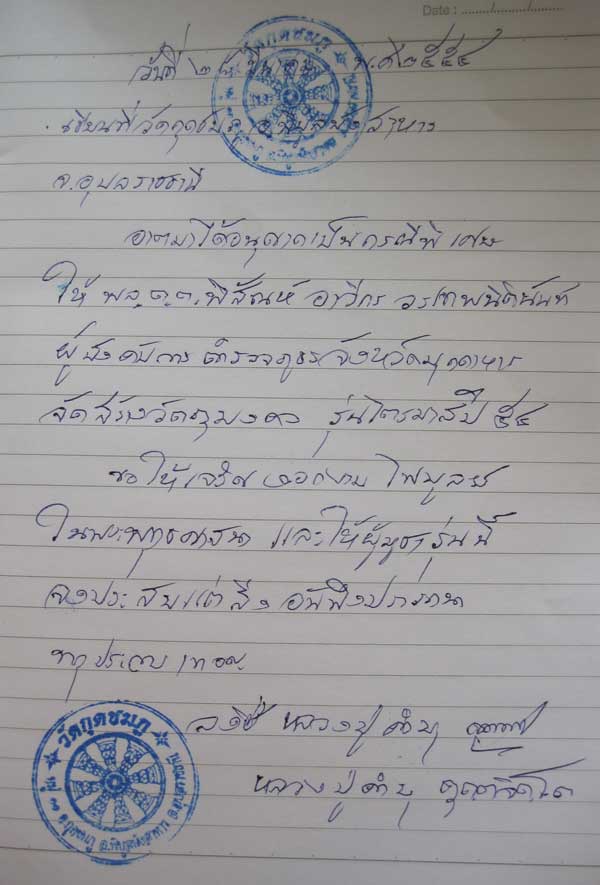 Date : ......../......../........
วันที่ ๒๘ มีนาคม พ.ศ ๒๕๕๔
เขียนที่วัดกุดชมภู อ.พิบูลมังสาหาร
จ.อุบลราชธานี
อาตมาได้อนุญาตเป็นกรณีพิเศษ
ให้ พล.ต.ต. พิสัณห์ อาวีกร วรเทพนิตินันท์
ผู้บังคับการตำรวจภูธรจังหวัดมุกดาหาร
จัดสร้างวัตถุมงคล รุ่นไตรมาสปี ๕๔
ขอให้เจริญงอกงามไพบูลย์
ในพระพุทธศาสนา และให้ผู้บูชารุ่นนี้
จงประสบแต่สิ่งอันพึงปรารถนา
ทุกประการ เทอญ
ลงชื่อ หลวงปู่คำบุ
หลวงปู่คำบุ คุตตจิตโต
วัดกุดชมภู